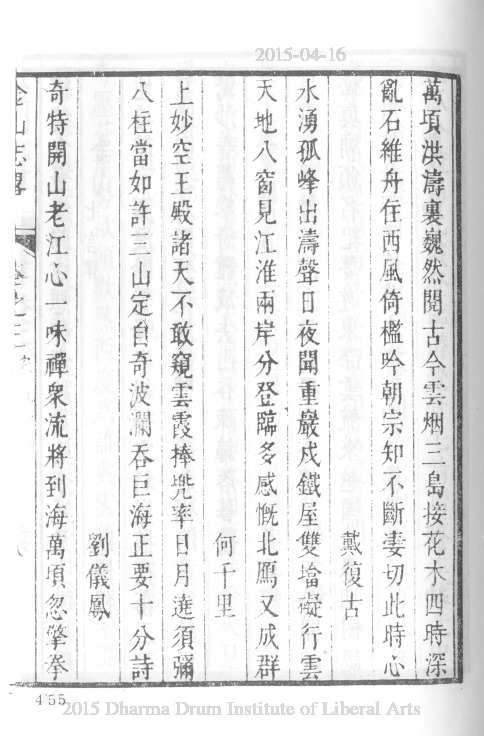 2015-04-16
萬頃洪濤裏巍然閱古今雲烟三島接花木四時深
亂石維舟住西風倚檻吟朝宗知不斷凄切此時心
戴復古
水湧孤峰出濤聲日夜聞重巖戍鐵屋雙塔礙行雲
天地八窗見江淮兩岸分登臨多感慨北鴈又成群
何千里
上妙空王殿諸天不敢窺雲霞捧兜率日月遶須彌
八柱當如許三山定自奇波瀾吞巨海正要十分詩
劉儀鳳
奇特開山老江心一味禪衆流將到海萬頃忽擎拳
金山志畧
卷之二
455
2015 Dharma Drum Institute of Liberal Arts